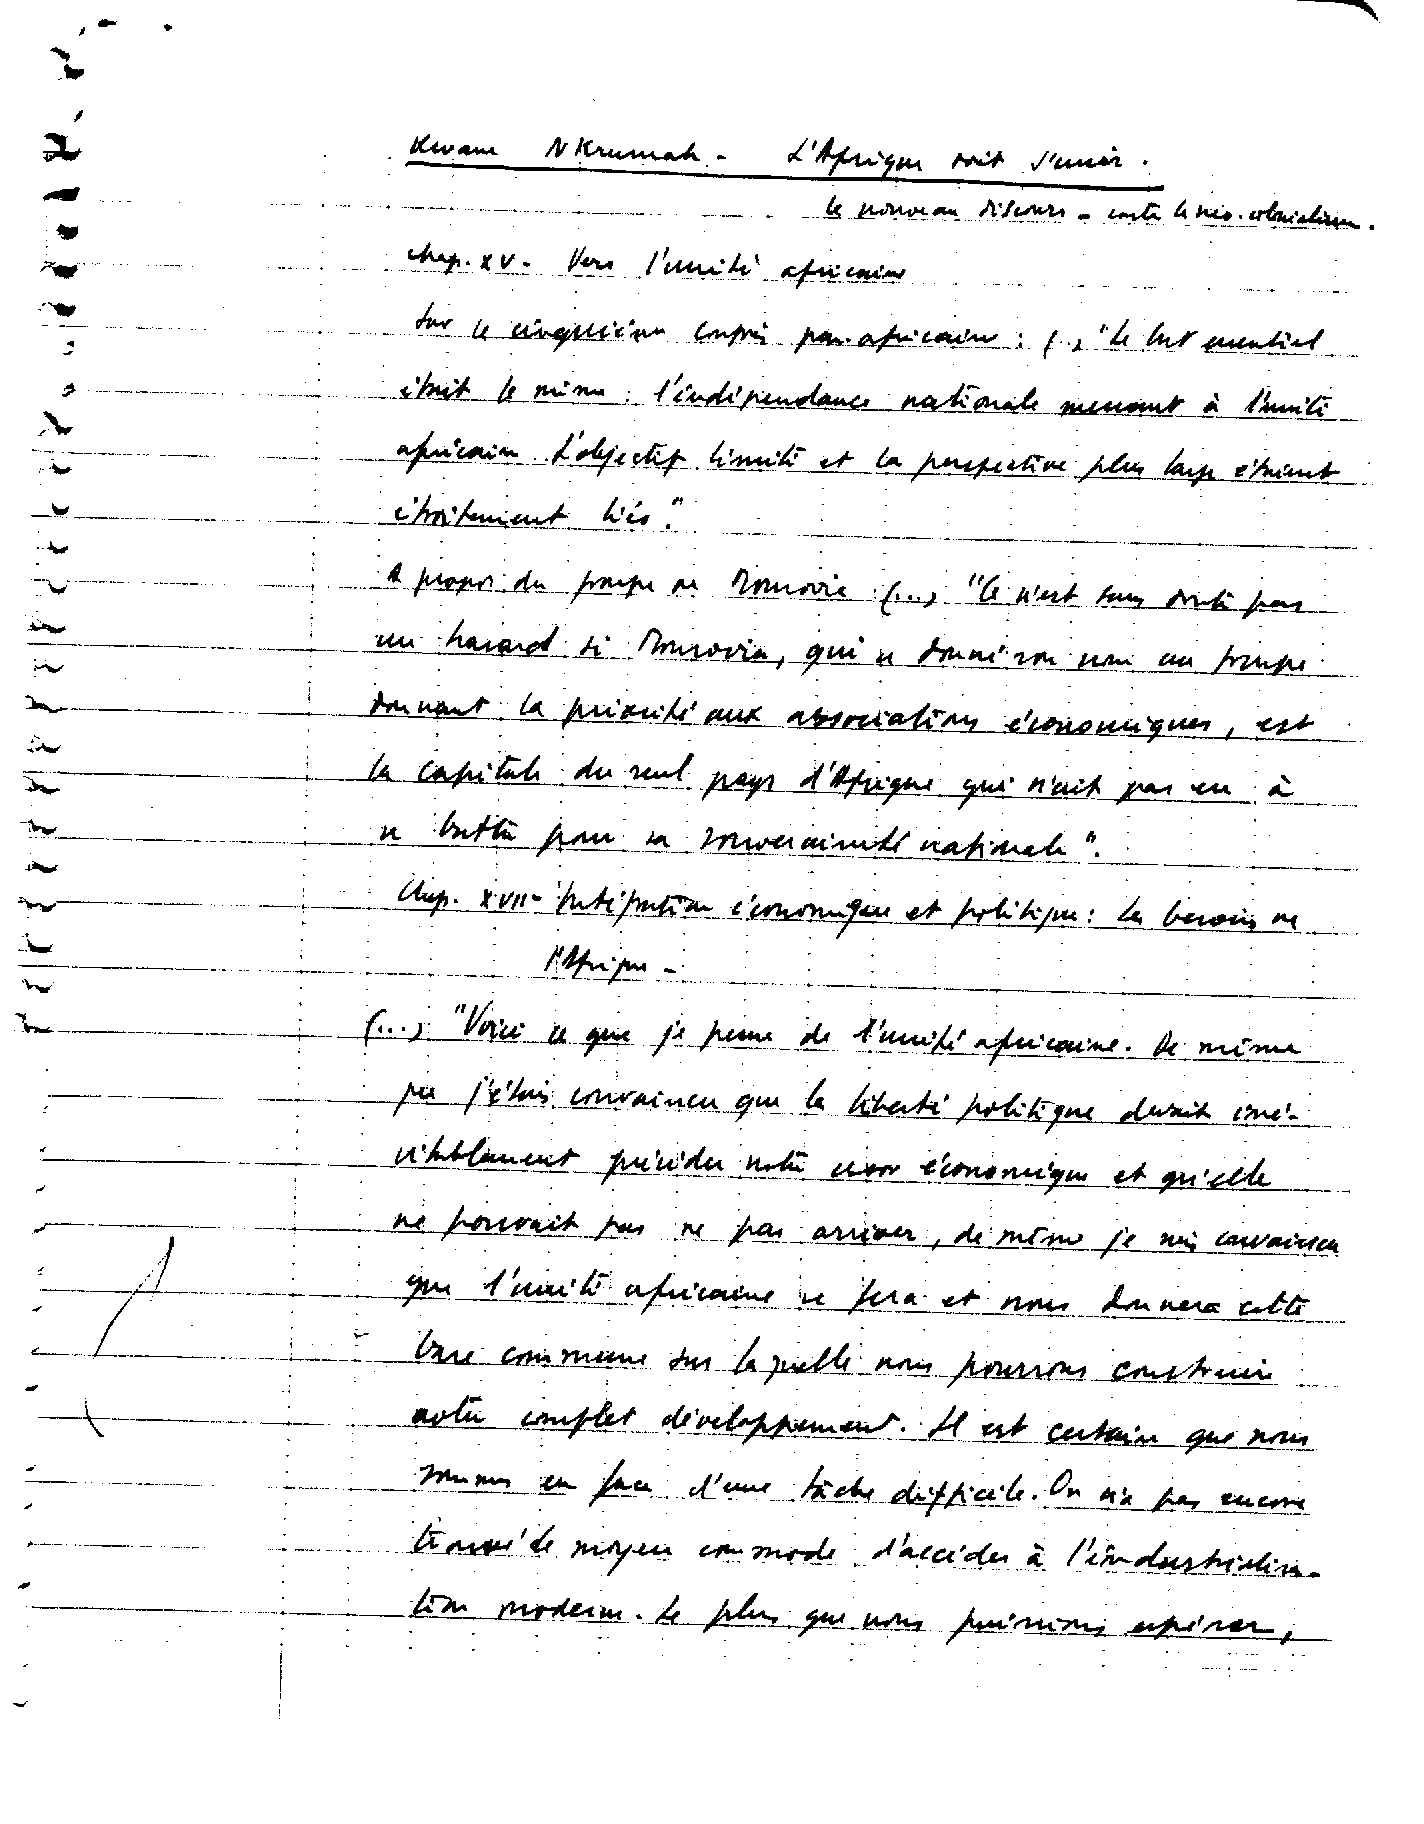 Kwame NKrumah - L'Afrique doit s'unir.
le nouveau discours - contre le néo-colonialisme.
Chap. XV - Vers l'unité africaine
Sur le cinquième congrès pan-africain : (..) "Le but essentiel
était le même : l'indépendance nationale menant à l'unité
africaine. L'objectif limité et la perspective plus large étaient
étroitement liés".
A propos du groupe de Monrovia (...) "Ce n'est sans doute pas
un hasard si Monrovia, qui a donné son nom au groupe
donnant la priorité aux associations économiques, est
la capitale du seul pays d'Afrique qui n'ait pas eu à
se battre pour sa souveraineté nationale".
Chap. XVII - Intégration économique et politique : les besoins de
l'Afrique -
(...) "Voici ce que je pense de l'unité africaine. De même
que j'étais convaincu que la liberté politique devait iné-
vitablement précéder notre essor économique et qu'elle
ne pouvait pas ne pas arriver, de même je suis convaincu
que l'unité africaine se fera et nous donnera cette
base commune sur laquelle nous pourrons construire
notre complet développement. Il est certain que nous
sommes en face d'une tâche difficile. On n'a pas encore
trouvé le moyen commode d'accéder à l'industrialisa-
tion moderne. Le plus que nous puissions espérer,